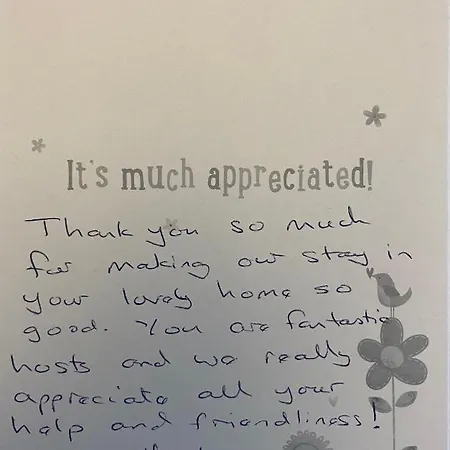 It's much appreciated!
Thank you so much
for making our stay in
your lovely home so
good. You are fantastic
hosts and we really
appreciate all your
help and friendliness!